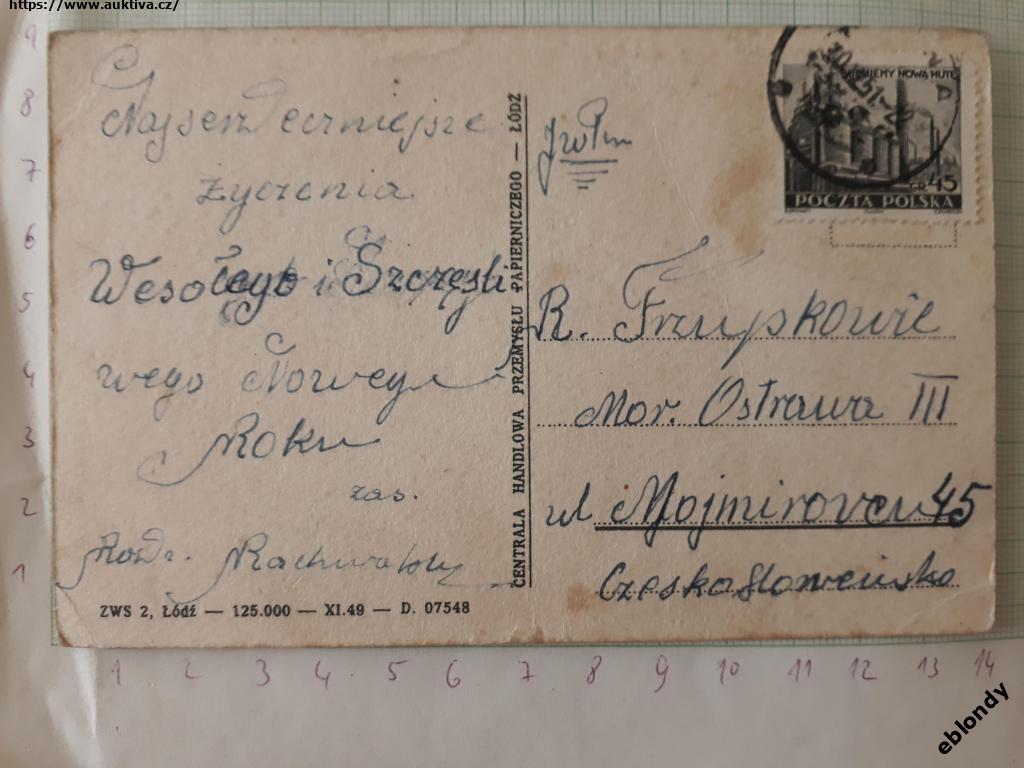 https://www.auktiva.cz/
Najserdeczniejsze
życzenia
Wesołego i Szczęśli
wego Nowego
Roku
zas.
Rodz.
ZWS 2, Łódź — 125.000 — XI.49 — D. 07548
CENTRALA HANDLOWA PRZEMYSŁU PAPIERNICZEGO — ŁÓDŹ
BUDUJEMY NOWĄ HUTĘ
GR 45
POCZTA POLSKA
R. Frzupkowie
Mor. Ostrawa III
ul Mojmirovcu 45
Czeskosłoweńsko
9
8
7
6
5
4
3
2
1
1 2 3 4 5 6 7 8 9 10 11 12 13 14
eblondy